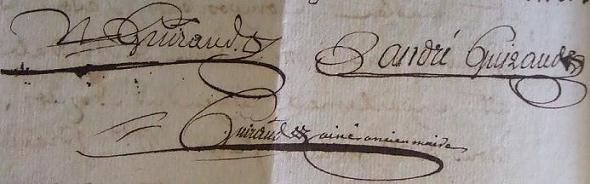 Guiraud
andré Guiraud
Guiraud ainé ancien maire